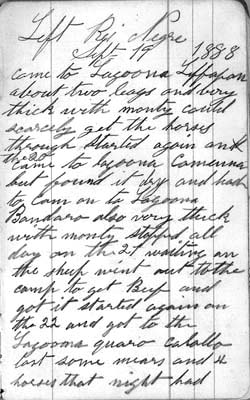 Left Rio Negre
Sept 19 1888
came to Lagoona
about two leags and very
thick with monty could
scarcely get the horses
through started again and
the 20
came to Lagoona Camerina
but found it dry and had
to Cam on to Lagoona
Bandaro also very thick
with monty stoped all
day on the 21 waiting on
the sheep went out to the
camp to get Beef and
got it started again on
the 22 and got to the
Lagoona quaro caballo
lost some mears and 4
horses that night had